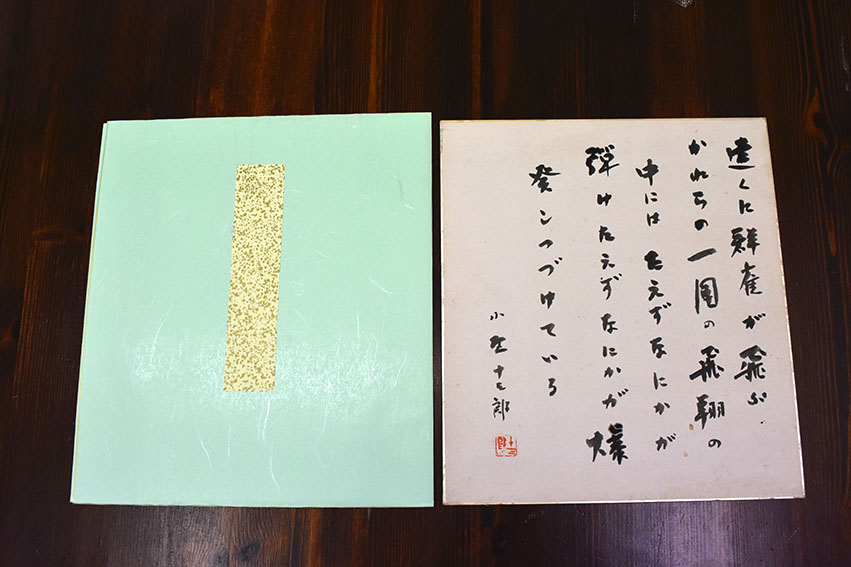 遠くに群雀が飛ぶ
かれらの一団の飛翔の
中には たえずなにかが
弾け たえずなにかが爆
発しつづけている
小野十三郎